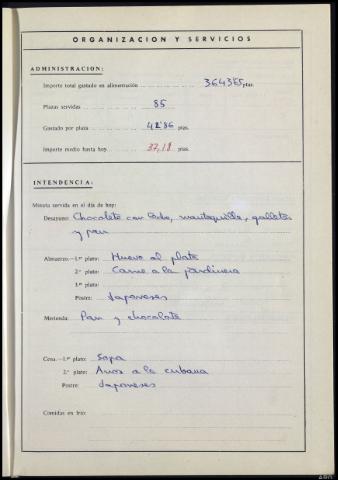 ORGANIZACION Y SERVICIOS
ADMINISTRACION:
Importe total gastado en alimentación 3643'65 ptas.
Plazas servidas 85
Gastado por plaza 42'86 ptas.
Importe medio hasta hoy 37,18 ptas.
INTENDENCIA:
Minuta servida en el día de hoy:
Desayuno: Chocolate con leche, mantequilla, galletas
y pan
Almuerzo.—1.er plato: Huevo al plato
2.º plato: Carne a la jardinera
3.er plato:
Postre: Japoneses
Merienda: Pan y chocolate
Cena.—1.er plato: Sopa
2.º plato: Arroz a la cubana
Postre: Japoneses
Comidas en frío: